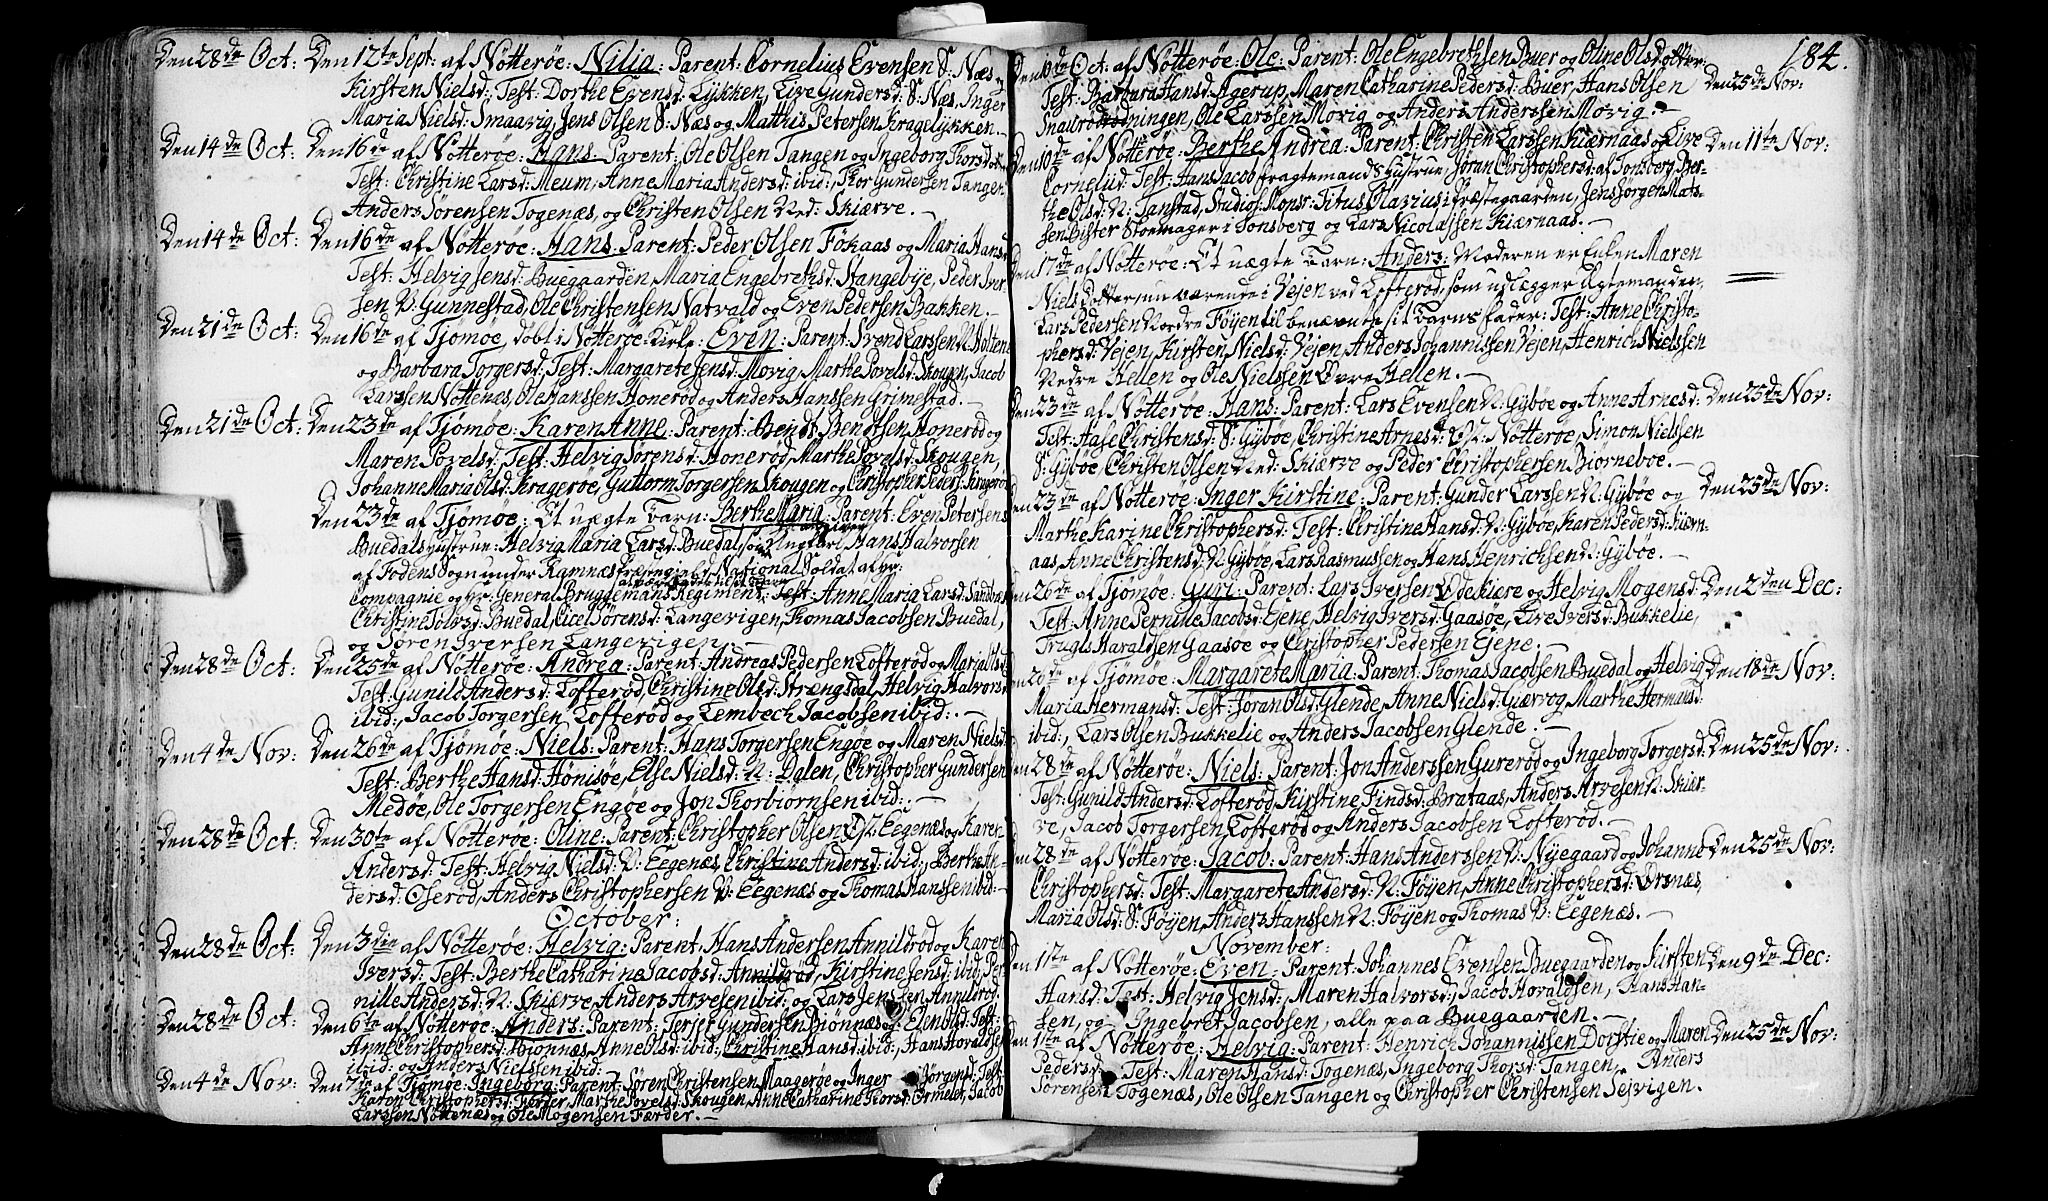 Den 28de Oct: Den 12te Sept: af Nøtterøe: Nilia: Parent: Cornelius Evensen S: Næs og
Kirsten Nielsd: Test: Dorthe Evensd: Lykken, Live Gundersd: S: Næs, Inger
Maria Nielsd: Smaavig, Jens Olsen S: Næs og Matthis Petersen Kragelykken.
Den 14de Oct: Den 16de af Nøtterøe: Hans Parent: Ole Olsen Tangen og Ingeborg Thorsdotter
Test: Christine Larsd: Meum, Anne Maria Andersd: ibid:, Thor Gundersen Tangen,
Anders Sørensen Togenæs, og Christen Olsen Ned: Skiærve.
Den 14de Oct: Den 16de af Nøtterøe: Hans Parent: Peder Olsen Føkaas og Maria Hansd:
Test: Helvig Jensd: Buegaarden, Maria Engebrethsd: Hangebye, Peder Iver-
sen V: Gunnestad, Ole Christensen Natvald og Even Pedersen Bakken.
Den 21de Oct: Den 16de af Tjømøe, døbt i Nøtterøe Kirke: Even: Parent: Svend Larssen N: Holtene
og Barbara Torgersd: Test: Margarete Jensd: Movig, Marthe Povelsd: Skougen, Jacob
Larssen Nøttenes, Ole Hanssen Honerød og Anders Hanssen Grimestad.
Den 21de Oct: Den 23de af Tjømøe: Karen Anne: Parent: Bendt Bendtsen Honerød og
Maren Povelsd: Test: Helvig Sørensd: Honerød, Marthe Povelsd: Skougen,
Johanne Maria Olsd: Kragerøe, Guttorm Torgersen Skougen og Christopher Peders: Kragerøe
Den 23de af Tjømøe: Et uægte Barn: Berthe Maria: Parent: Even Petersens
Buedals hustrue: Helvig Maria Larsd: Buedal, som angiver Ungkarl Hans Halvorsen
af Fodens Sogn under Ramnæs Præstegield National Soldat af
Compagnie og General Bruggemans Regiment at være Fader til sit Barn: Test: Anne Maria Larsd: Sandbæk
Christine Tolvsd: Buedal, Cicel Sørensd: Langevigen, Thomas Jacobsen Buedal,
og Søren Iversen Langevigen.
Den 28de Oct: Den 25de af Nøtterøe: Andrea: Parent: Andreas Pedersen Lofterød og Maria Olsd:
Test: Gunild Andersd: Lofterød, Christine Olsd: Strængsdal, Helvig Halvorsd:
ibid:, Jacob Torgersen Lofterød og Lembech Jacobsen ibid:.
Den 4de Nov: Den 26de af Tjømøe: Niels: Parent: Hans Torgersen Engøe og Maren Nielsd:
Test: Berthe Hansd: Hønisøe, Else Nielsd: N: Dalen, Christopher Gundersen
Medøe, Ole Torgersen Engøe og Jon Thorbiørnsen ibid:.
Den 28de Oct: Den 30te af Nøtterøe: Oline: Parent: Christopher Olsen Eegenæs og Karen
Andersd: Test: Helvig Nielsd: V: Eegenæs, Christine Andersd: ibid:, Berthe An-
dersd: Oserød, Anders Christophersen V: Eegenæs og Thomas Hanssen ibid:
October:
Den 28de Oct: Den 3die af Nøtterøe: Helvig: Parent, Hans Andersen Annildrød og Karen
Iversd: Test: Berthe Catharine Jacobsd: Annildrød, Kirstine Jensd: ibid, Per-
nille Andersd: N: Skiærve, Anders Arvesen ibid: og Lars Jenssen Annildrød.
Den 28de Oct: Den 6te af Nøtterøe: Anders: Parent: Terjer Gundersen Biønnæs og Elen Olsd: Test:
Anne Christophersd: Biønnæs, Anne Olsd: ibid:, Christine Hansd: ibid:, Hans Hovaldsen
ibid: og Anders Nielssen ibid:
Den 4de Nov: Den 7de af Tjømøe: Ingeborg: Parent: Søren Christensen Maagerøe og Inger Jørgensd: Test:
Karen Christophersd: Færder, Marthe Povelsd: Skougen, Anne Catharine Thorsd: Ormelet, Jacob
Larssen Nøttenæs og Ole Mogensen Færder.
184.
Den Oct: af Nøtterøe: Ole: Parent: Ole Engebrethsen Buer og Oline Olsdotter:
Test: Barbara Hansd: Agerup, Maren Catharine Pedersd: Buer, Hans Olsen Den 25de Nov:
Snaurødødningen, Ole Larssen Movig og Anders Anderssen Movig.
Den 10de af Nøtterøe: Berthe Andrea: Parent: Christen Larssen Kiærnaas og Live Den 11te Nov:
Cornelijd: Test: Hans Jacob Fragtemands Hustrue Jøran Christophersd: af Tønsberg, Ber-
the Olsd: N: Tanstad, Studios: Monsr: Titus Olavius i Præstegaarden, Jens Jørgen Mats-
sen Bister Skomager i Tønsberg og Lars Nicolassen Kiærnaas.
Den 17de af Nøtterøe: Et uægte Barn: Anders: Moderen er Enken Maren
Nielsdotter, nu værende i Vejen ved Lofterød, som udlægger Ægtemanden,
Lars Pedersen Nordre Føyen til benævnte sit Barns Fader: Test: Anne Christo-
phersd: Vejen, Kirsten Nielsd: Vejen, Anders Johannissen Vejen, Henrich Nielssen
Nedre Hellen og Ole Nielssen Øvre Hellen.
Den 23de af Nøtterøe: Hans: Parent: Lars Evensen N: Gybøe og Anne Arnesd: Den 25de Nov:
Test: Aase Christensd: S: Gybøe, Christine Arnesd: Nøtterøe, Simon Nielssen
S: Gybøe, Christen Olsen Ned: Skiærve og Peder Christophersen Biørneboe.
Den 23de af Nøtterøe: Inger Kirstine: Parent: Gunder Larssen N: Gybøe og Den 25de Nov:
Marthe Karine Christophersd: Test: Christine Hansd: N: Gybøe, Karen Pedersd: Kiærn-
aas, Anne Christensd: N: Gybøe, Lars Rasmussen og Hans Henrichsen N: Gybøe.
Den 26de af Tjømøe: Guri: Parent: Lars Iversen Ødekiære og Helvig Mogensd: Den 2den Dec:
Test: Anne Pernille Jacobsd: Ejene, Helvig Iversd: Gaasøe, Live Iversd: Bukkelie,
Trugls Haraldsen Gaasøe og Christopher Pedersen Ejene.
Den 26de af Tjømøe: Margarete Maria: Parent: Thomas Jacobsen Buedal og Helvig Den 18de Nov:
Maria Hermansd: Test: Jøran Olsd: Glende, Anne Nielsd: Giærvog, Marthe Hermansd:
ibid:, Lars Olsen Bukkelie og Anders Jacobsen Glende.
Den 28de af Nøtterøe: Niels: Parent: Jon Anderssen Gurerød og Ingeborg Torgersd: Den 25de Nov:
Test: Gunild Andersd: Lofterød, Kirstine Findsd: Brataas, Anders Arvesen N: Skiær-
ve, Jacob Torgersen Lofterød og Anders Jacobsen Lofterød.
Den 28de af Nøtterøe: Jacob: Parent: Hans Anderssen V: Nyegaard og Johanne Den 25de Nov:
Christophersd: Test: Margarete Andersd: N: Føyen, Anne Christophersd: Ørsnæs,
Maria Olsd: S: Føyen, Anders Hanssen N: Føyen og Thomas V: Eegenæs.
November:
Den 1ste af Nøtterøe: Even: Parent: Johannes Evensen Buegaarden og Kirsten Den 9de Dec:
Hansd: Test: Helvig Jensd:, Maren Halvorsd:, Jacob Hovaldsen, Hans Han-
sen, og Ingebret Jacobsen, alle paa Buegaarden.
Den 11te af Nøtterøe: Helvig: Parent: Henrich Johannissen Dorstie og Maren Den 25de Nov:
Pedersd: Test: Maren Hansd: Togenæs, Ingeborg Thorsd: Tangen, Anders
Sørensen Togenæs, Ole Olsen Tangen og Christopher Christensen Sejvigen.